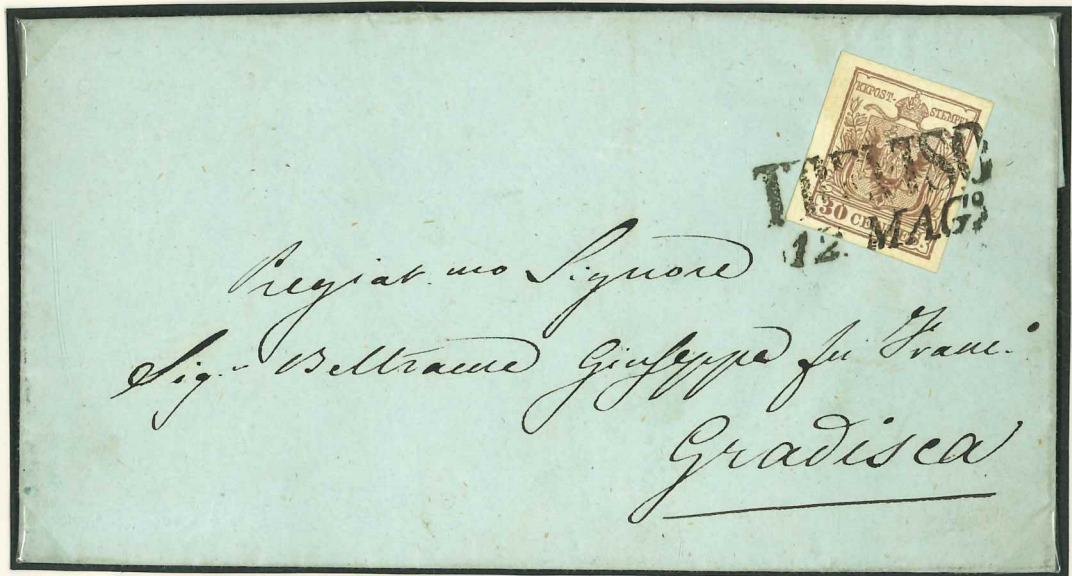 KKPOST-STEMPEL
TREVISO
30 CENTES.
12. MAG.º
Pregiat.mo Signore
Sig.r Beltrame Giuseppe fu Franc.
Gradisca